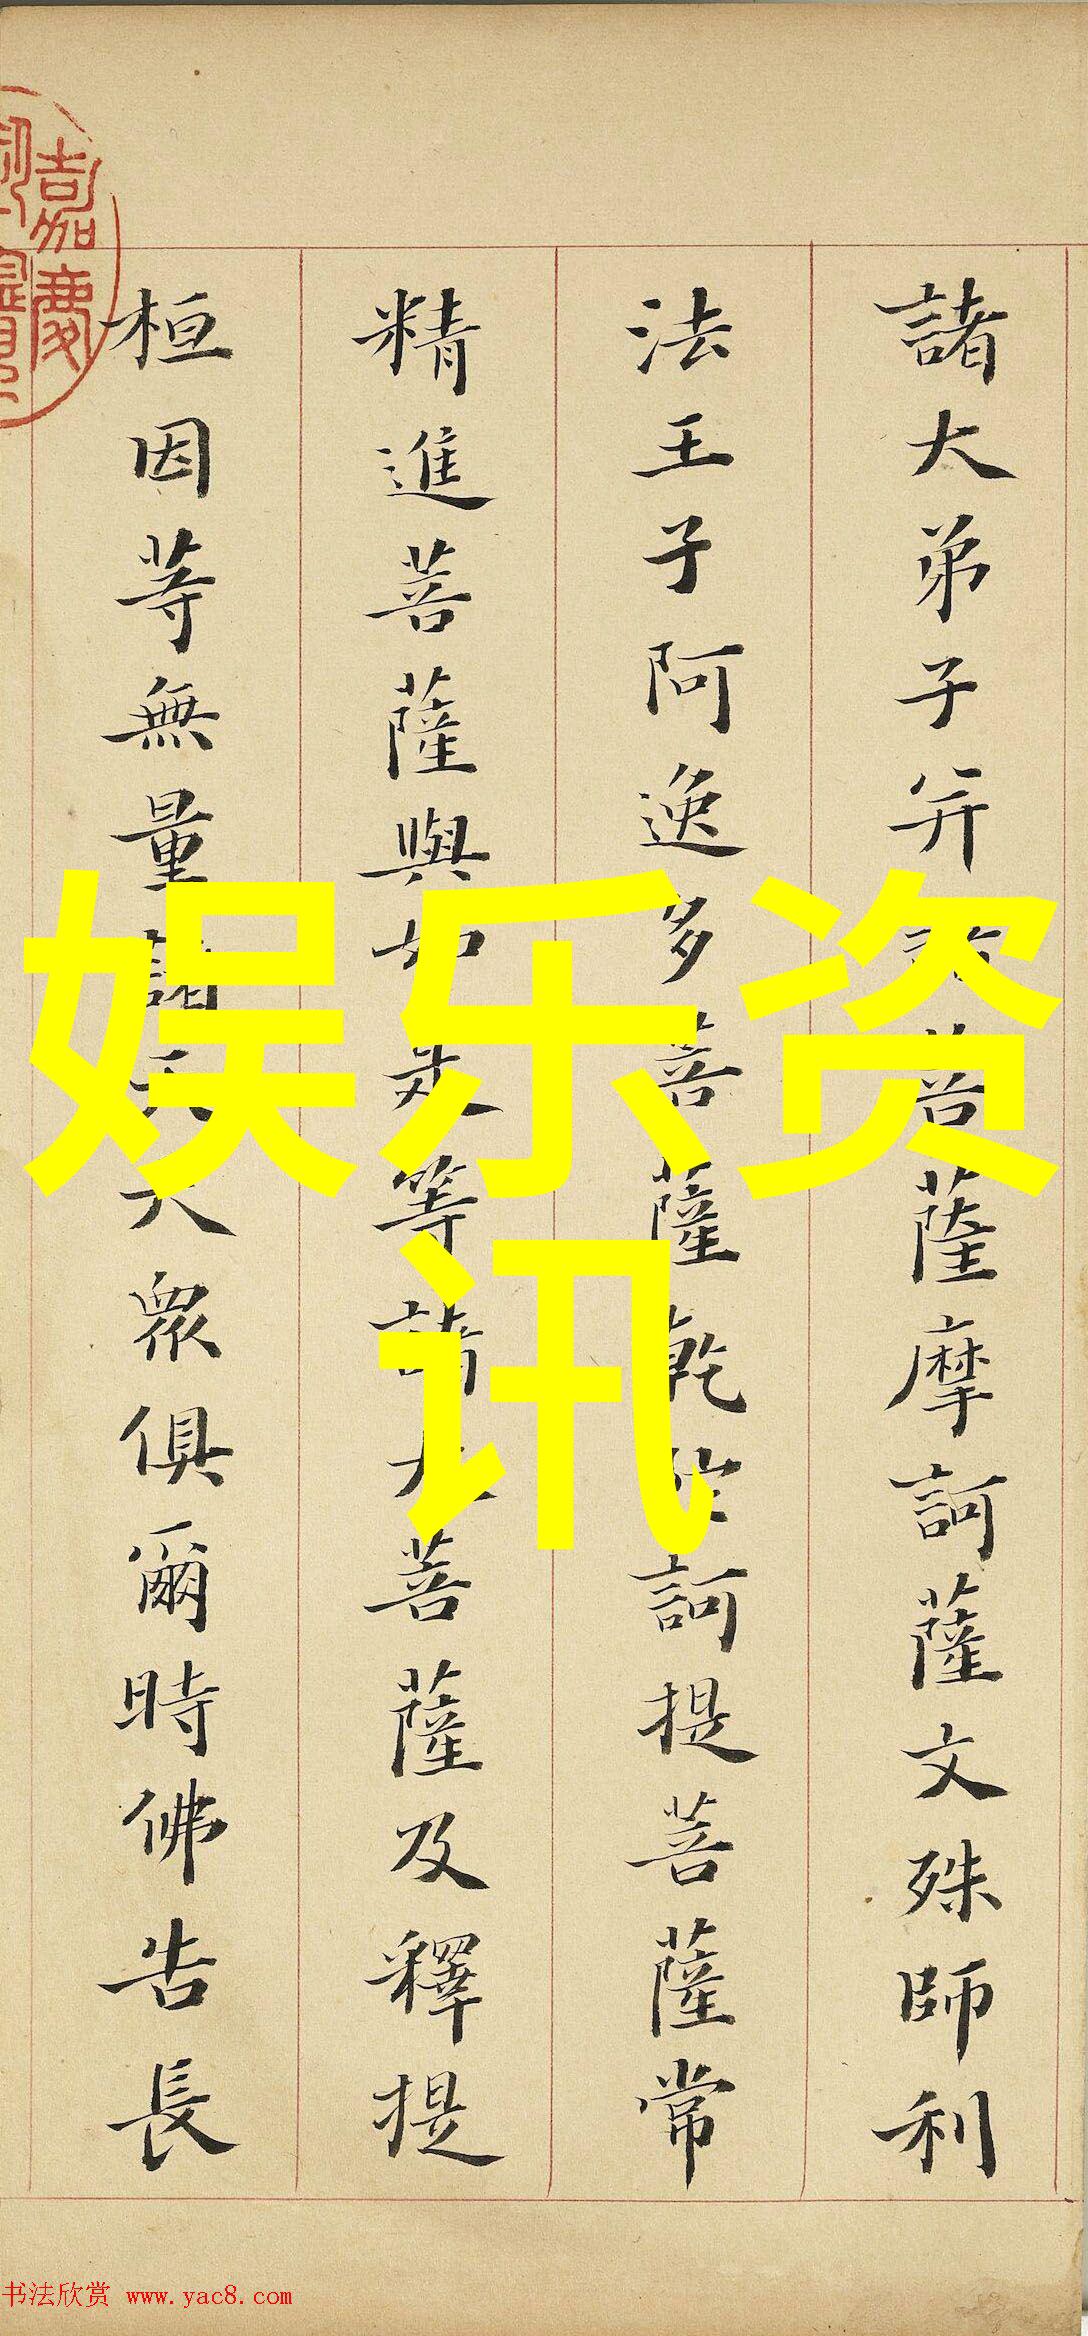 諸大弟子并諸菩薩摩訶薩文殊師利
法王子阿逸多菩薩乾陀訶提菩薩常
精進菩薩與如是等諸大菩薩及釋提
桓因等無量諸天大眾俱爾時佛告長
娱乐资
讯
嘉慶
书法欣赏 www.yac8.com